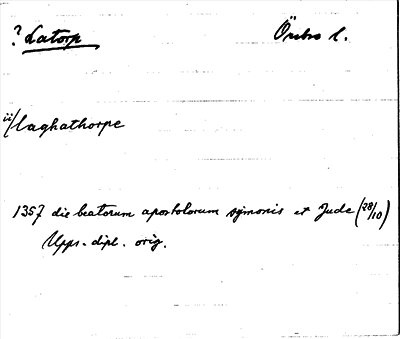 ? Latorp Örebro l.
ii/laghathorpe
1357 die beatorum apostolorum symonis et Jude (28/10)
Upps. dipl. orig.